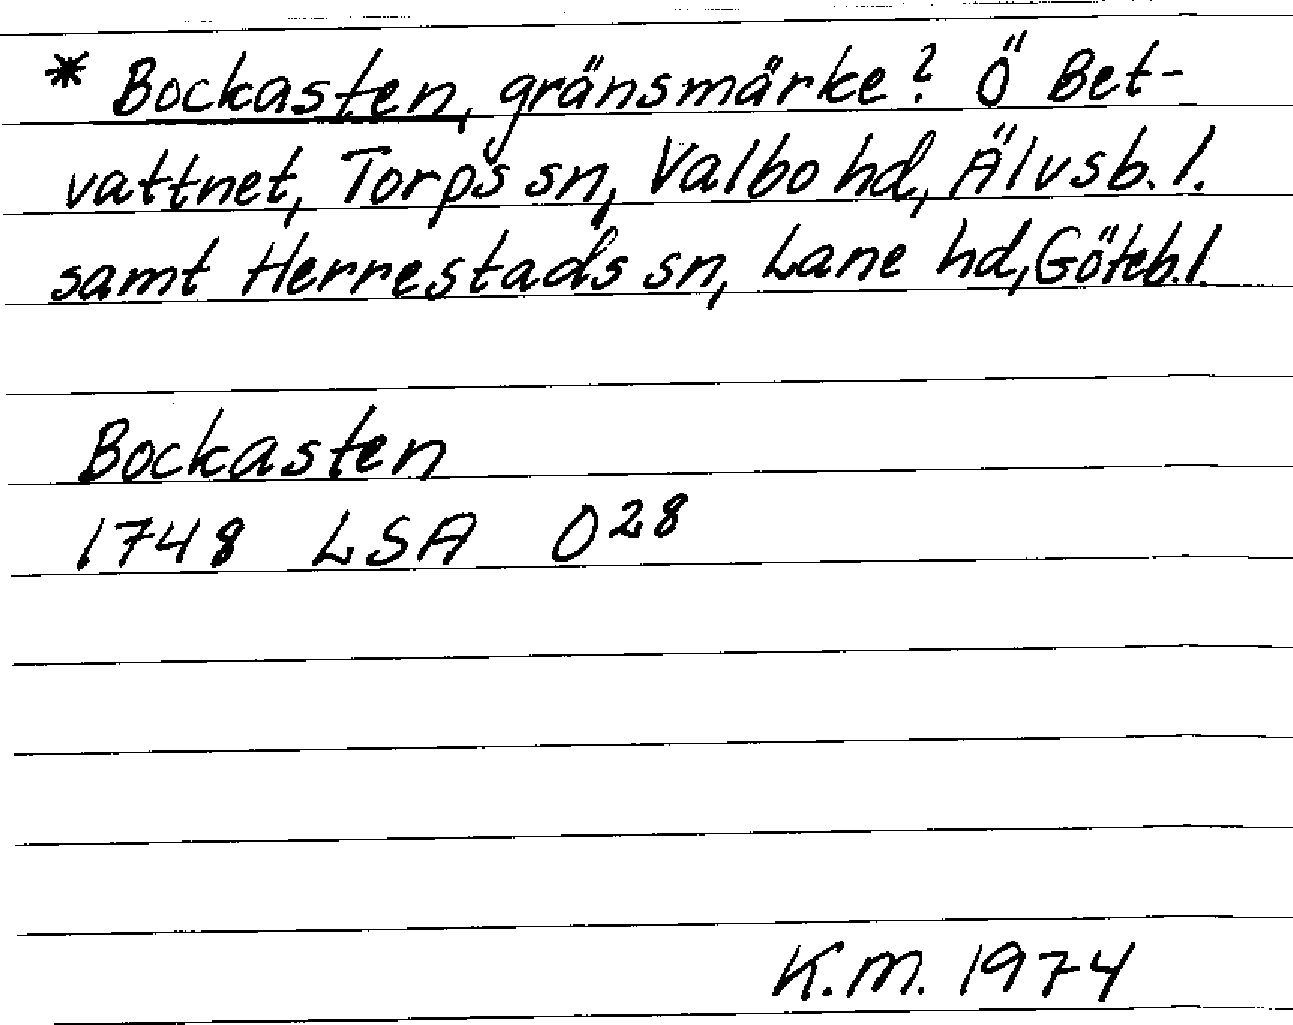 * Bockasten, gränsmärke? Ö Bet-
vattnet, Torps sn, Valbo hd, Älvsb.l.
samt Herrestads sn, Lane hd, Göteb.l.
Bockasten
1748 LSA O28
K.M. 1974